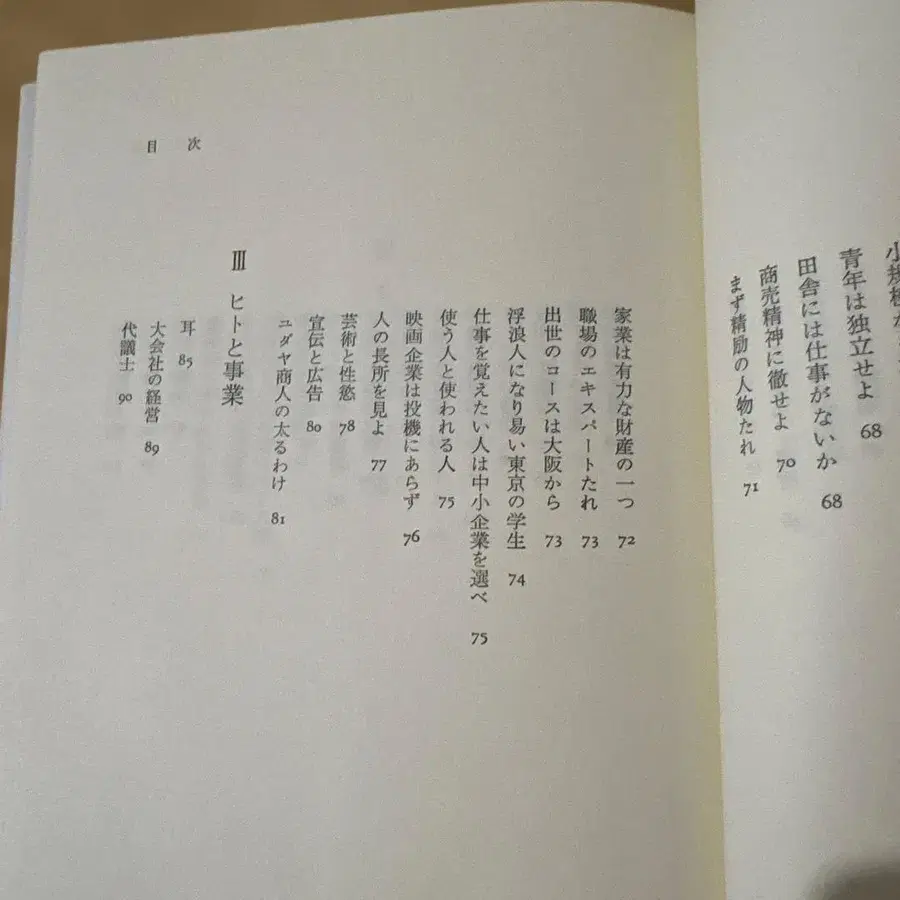 小規模な
青年は独立せよ 68
田舎には仕事がないか 68
商売精神に徹せよ 70
まず精励の人物たれ 71
目次
家業は有力な財産の一つ 72
職場のエキスパートたれ 73
出世のコースは大阪から 73
浮浪人になり易い東京の学生 74
仕事を覚えたい人は中小企業を選べ 75
使う人と使われる人 75
映画企業は投機にあらず 76
人の長所を見よ 77
芸術と性慾 78
宣伝と広告 80
ユダヤ商人の太るわけ 81
III ヒトと事業
耳 85
大会社の経営 89
代議士 90